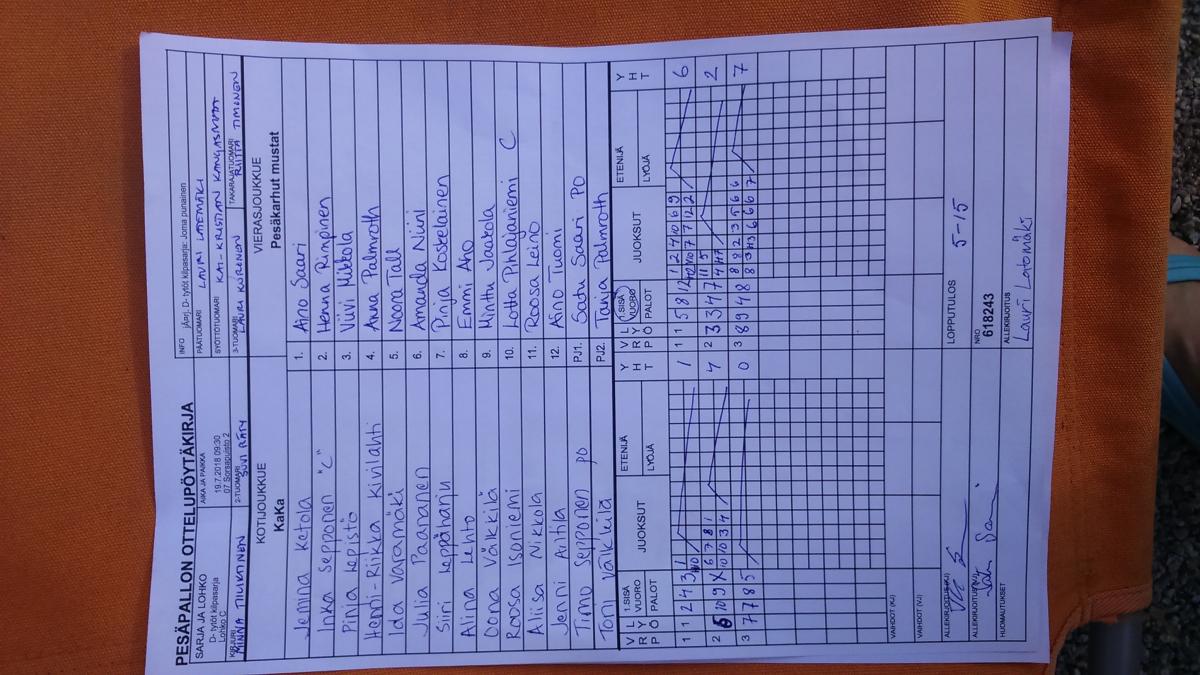 PESÄPALLON OTTELUPÖYTÄKIRJA
INFO jÄprj. D- tytöt kilpasarja: Joma punainen
SARJA JA LOHKO
D- tytöt kilpasarja
Lohko C
AIKA JA PAIKKA
19.7.2018 09:30
07 Sorsapuisto 2
PÄÄTUOMARI LAURI LATEMÄKI
SYÖTTÖTUOMARI KAI-KRISTIAN KANGASMAA
KIRJURI MINNA TIUKTINEN
2-TUOMARI SUVI RÄTY
3-TUOMARI LAURI KIIRONEN
TAKARAJATUOMARI RIITTA TIMONEN
KOTIJOUKKUE
KaKa
VIERASJOUKKUE
Pesäkarhut mustat
Jemina Ketola 1. Aino Saari
Inka Sepponen "C" 2. Henna Rimpinen
Pinja Lepistö 3. Viivi Mikkola
Henni-Riikka Kivilahti 4. Anna Palmroth
Iida Varamäki 5. Noora Tall
Julia Paananen 6. Amanda Niini
Siiri Leppäharju 7. Pinja Koskelainen
Alina Lehto 8. Emmi Aho
Oona Välkkilä 9. Minttu Jaakola
Roosa Isoniemi 10. Lotta Pihlajaniemi C
Aliisa Nikkola 11. Roosa Leino
Jenni Anttila 12. Aino Tuomi
Timo Sepponen PO PJ1. Satu Saari PO
Toni Välkkilä PJ2. Tanja Palmroth
V R P L Y Ö 1.SISÄ VUORO PALOT JUOKSUT ETENIJÄ LYÖJÄ Y H T V R P L Y Ö 1.SISÄ VUORO PALOT JUOKSUT ETENIJÄ LYÖJÄ Y H T
1 1 2 4 3 1 1 1 1 5 8 12 1 2 4 10 6 9 6
10 12 10 7 7 12 2
2 5 10 9 X 6 7 8 1 4 2 3 3 4 7 11 5 2
10 10 3 4 4 H7
3 7 7 8 5 0 3 8 9 4 8 8 8 2 3 5 6 6 7
8 3 H3 6 6 6 7
VAIHDOT (KJ)
VAIHDOT (VJ)
ALLEKIRJOITUS (KJ)
LOPPUTULOS 5-15
ALLEKIRJOITUS (VJ)
NRO
618243
HUOMAUTUKSET
ALLEKIRJOITUS
Lauri Latomäki